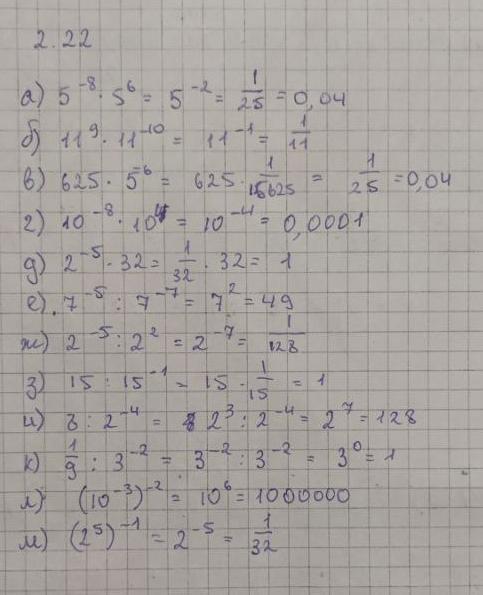 2.22
а) 5⁻⁸ · 5⁶ = 5⁻² = 1/25 = 0,04
б) 11⁹ · 11⁻¹⁰ = 11⁻¹ = 1/11
в) 625 · 5⁻⁶ = 625 · 1/15625 = 1/25 = 0,04
г) 10⁻⁸ · 10⁴ = 10⁻⁴ = 0,0001
д) 2⁻⁵ · 32 = 1/32 · 32 = 1
е) 7⁻⁵ : 7⁻⁷ = 7² = 49
ж) 2⁻⁵ : 2² = 2⁻⁷ = 1/128
з) 15 : 15⁻¹ = 15 · 1/15 = 1
и) 8 : 2⁻⁴ = 2³ : 2⁻⁴ = 2⁷ = 128
к) 1/9 : 3⁻² = 3⁻² : 3⁻² = 3⁰ = 1
л) (10⁻³)⁻² = 10⁶ = 1000000
м) (2⁵)⁻¹ = 2⁻⁵ = 1/32